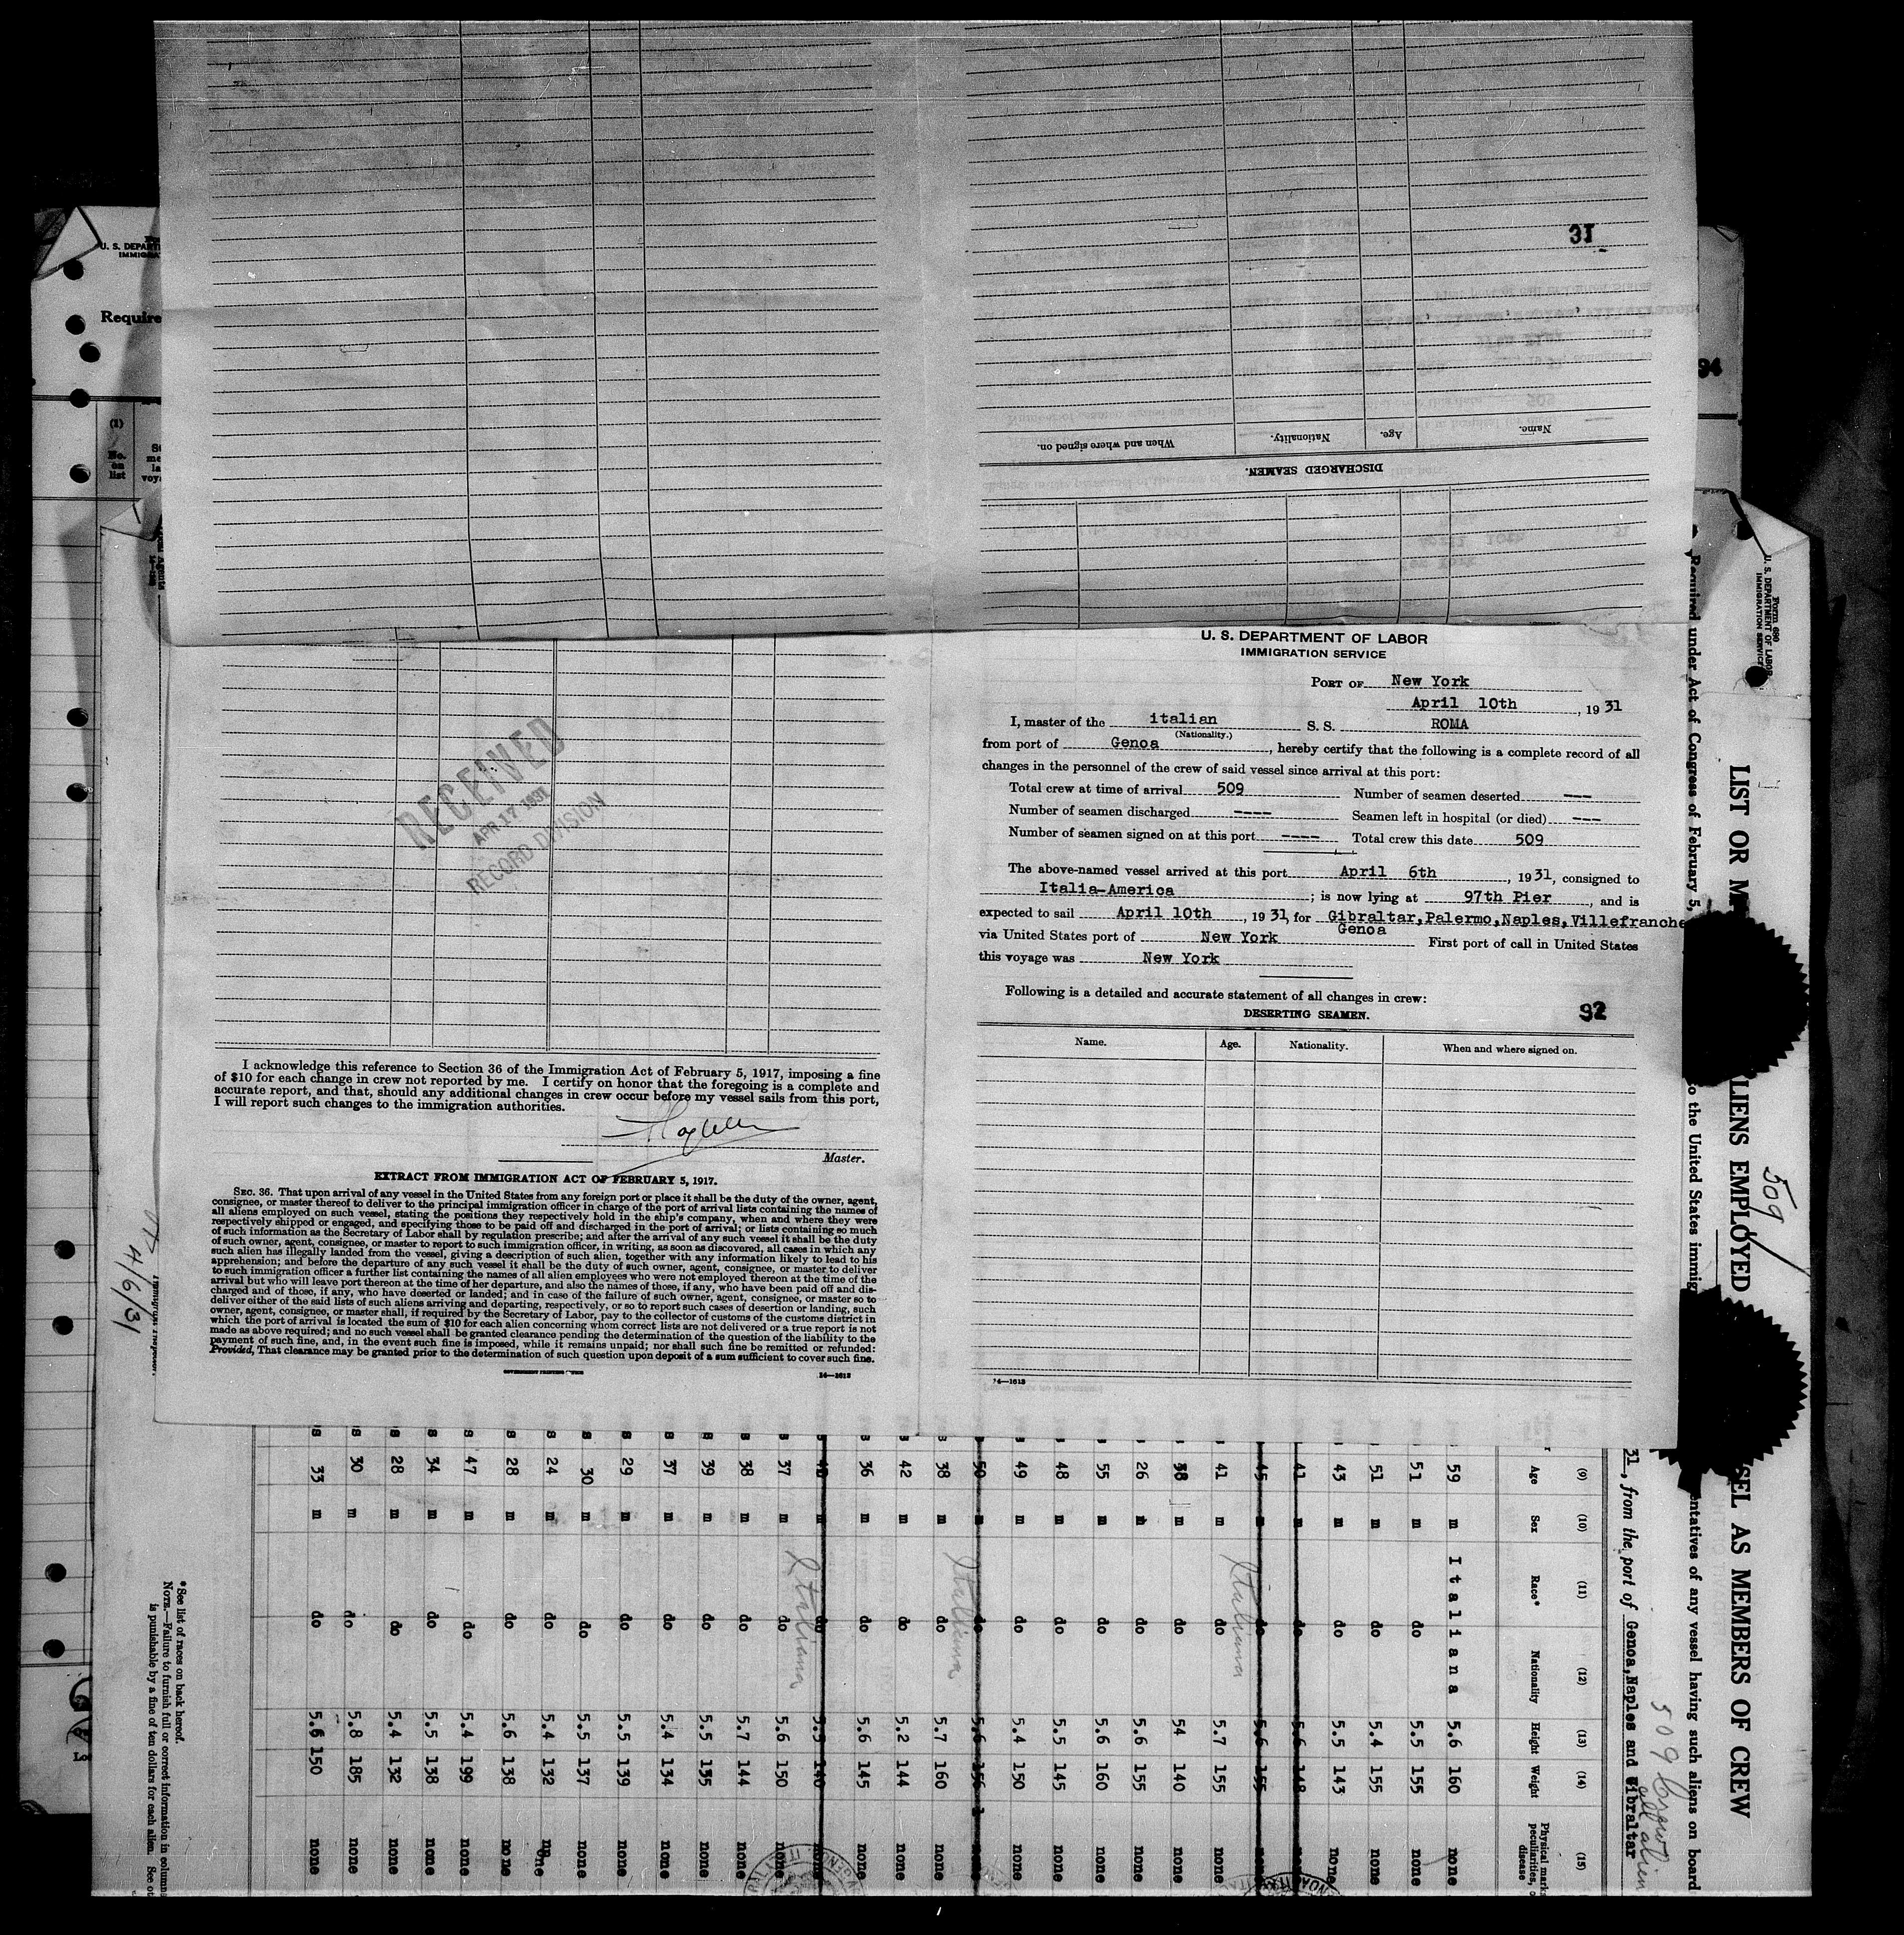 U. S. DEPARTMENT OF LABOR
IMMIGRATION SERVICE
PORT OF New York
April 10th, 1931
I, master of the italian S. S. ROMA
(Nationality.)
from port of Genoa, hereby certify that the following is a complete record of all
changes in the personnel of the crew of said vessel since arrival at this port:
Total crew at time of arrival 509 Number of seamen deserted ---
Number of seamen discharged ---- Seamen left in hospital (or died) ---
Number of seamen signed on at this port ---- Total crew this date 509
The above-named vessel arrived at this port April 6th, 1931, consigned to
Italia-America; is now lying at 97th Pier, and is
expected to sail April 10th, 1931, for Gibraltar,Palermo,Naples,Villefranche
Genoa
via United States port of New York First port of call in United States
this voyage was New York
Following is a detailed and accurate statement of all changes in crew:
92
DESERTING SEAMEN.
Name. Age. Nationality. When and where signed on.
14—1613
31
DISCHARGED SEAMEN.
Name. Age. Nationality. When and where signed on.
RECEIVED
APR 17 1931
RECORD DIVISION
I acknowledge this reference to Section 36 of the Immigration Act of February 5, 1917, imposing a fine
of $10 for each change in crew not reported by me. I certify on honor that the foregoing is a complete and
accurate report, and that, should any additional changes in crew occur before my vessel sails from this port,
I will report such changes to the immigration authorities.
Master.
EXTRACT FROM IMMIGRATION ACT OF FEBRUARY 5, 1917.
SEC. 36. That upon arrival of any vessel in the United States from any foreign port or place it shall be the duty of the owner, agent,
consignee, or master thereof to deliver to the principal immigration officer in charge of the port of arrival lists containing the names of
all aliens employed on such vessel, stating the positions they respectively hold in the ship's company, when and where they were
respectively shipped or engaged, and specifying those to be paid off and discharged in the port of arrival; or lists containing so much
of such information as the Secretary of Labor shall by regulation prescribe; and after the arrival of any such vessel it shall be the duty
of such owner, agent, consignee, or master to report to such immigration officer, in writing, as soon as discovered, all cases in which any
such alien has illegally landed from the vessel, giving a description of such alien, together with any information likely to lead to his
apprehension; and before the departure of any such vessel it shall be the duty of such owner, agent, consignee, or master to deliver
to such immigration officer a further list containing the names of all alien employees who were not employed thereon at the time of the
arrival but who will leave port thereon at the time of her departure, and also the names of those, if any, who have been paid off and dis-
charged and of those, if any, who have deserted or landed; and in case of the failure of such owner, agent, consignee, or master so to
deliver either of the said lists of such aliens arriving and departing, respectively, or so to report such cases of desertion or landing, such
owner, agent, consignee, or master shall, if required by the Secretary of Labor, pay to the collector of customs of the customs district in
which the port of arrival is located the sum of $10 for each alien concerning whom correct lists are not delivered or a true report is not
made as above required; and no such vessel shall be granted clearance pending the determination of the question of the liability to the
payment of such fine, and, in the event such fine is imposed, while it remains unpaid; nor shall such fine be remitted or refunded:
Provided, That clearance may be granted prior to the determination of such question upon deposit of a sum sufficient to cover such fine.
14—1613
U. S. DEPART
IMMIGRA
Require
(1)
No.
on
list
94
Form 680
U. S. DEPARTMENT OF LABOR
IMMIGRATION SERVICE
LIST OR M
LIENS EMPLOYED
SEL AS MEMBERS OF CREW
509
Required under Act of Congress of February 5,
to the United States immig
entatives of any vessel having such aliens on board
509 Crew
all alien
31, from the port of Genoa,Naples and Gibraltar
(9) (10) (11) (12) (13) (14) (15)
Age Sex Race* Nationality Height Weight Physical marks, peculiarities, or disease
59 m Italiana 5.6 160 none
51 m do 5.5 155 none
51 m do 5.4 155 none
43 m do 5.5 143 none
41 m do 5.6 148 none
45 m do 5.6 155 none
41 m do 5.7 155 none
Italiana
38 m do 54 140 none
26 m do 5.6 155 none
55 m do 5.6 160 none
48 m do 5.5 145 none
49 m do 5.4 150 none
50 m do 5.6 156 none
38 m do 5.7 160 none
Italiana
42 m do 5.2 144 none
36 m do 5.6 145 none
m do 140 none
37 m do 5.6 150 none
Italiana
38 m do 5.7 144 none
39 m do 5.5 135 none
37 m do 5.4 134 none
29 m do 5.5 139 none
30 m do 5.5 137 none
24 m do 5.4 132 none
28 m do 5.6 138 none
47 m do 5.4 199 none
34 m do 5.5 138 none
28 m do 5.4 132 none
30 m do 5.8 185 none
33 m do 5.6 150 none
*See list of races on back hereof.
NOTE.—Failure to furnish full or correct information in columns
is punishable by a fine of ten dollars for each alien. See ot
4/6/31
Immigrant Inspector.